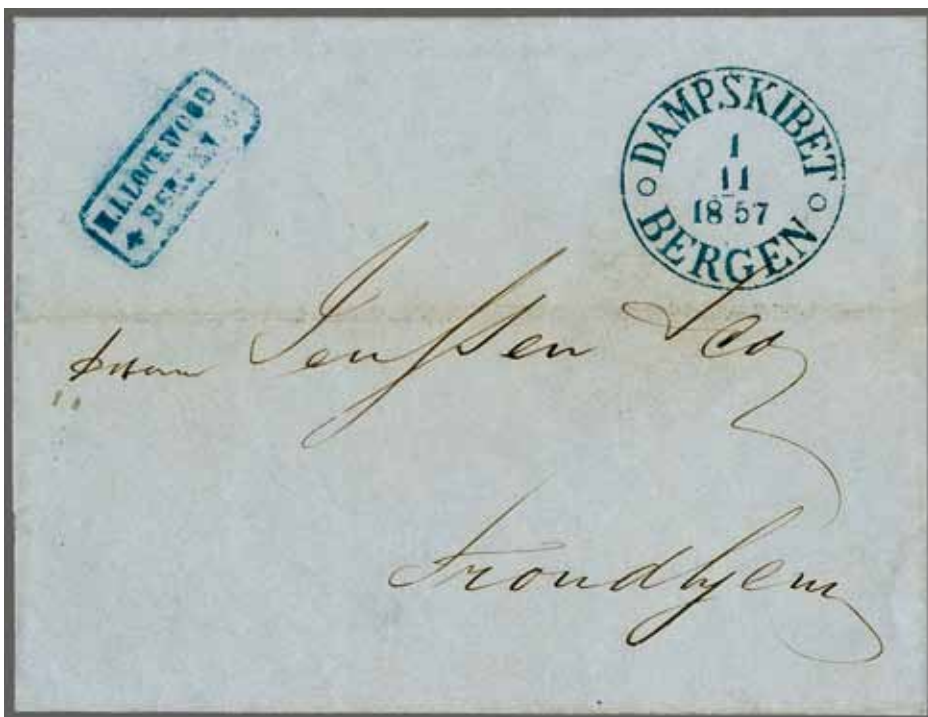 LOCKWOOD
BERGEN
DAMPSKIBET
1
11
1857
BERGEN
Jenssen & Co
Trondhjem